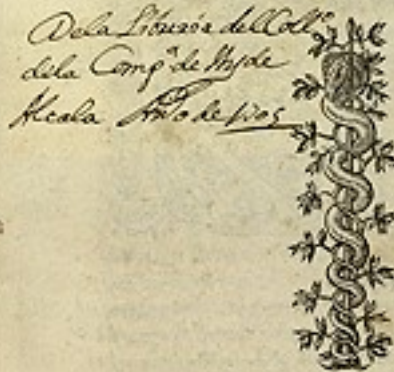 De la Libreria del Coll.º
de la Comp.ª de Jhs de
Alcala Año de 1705